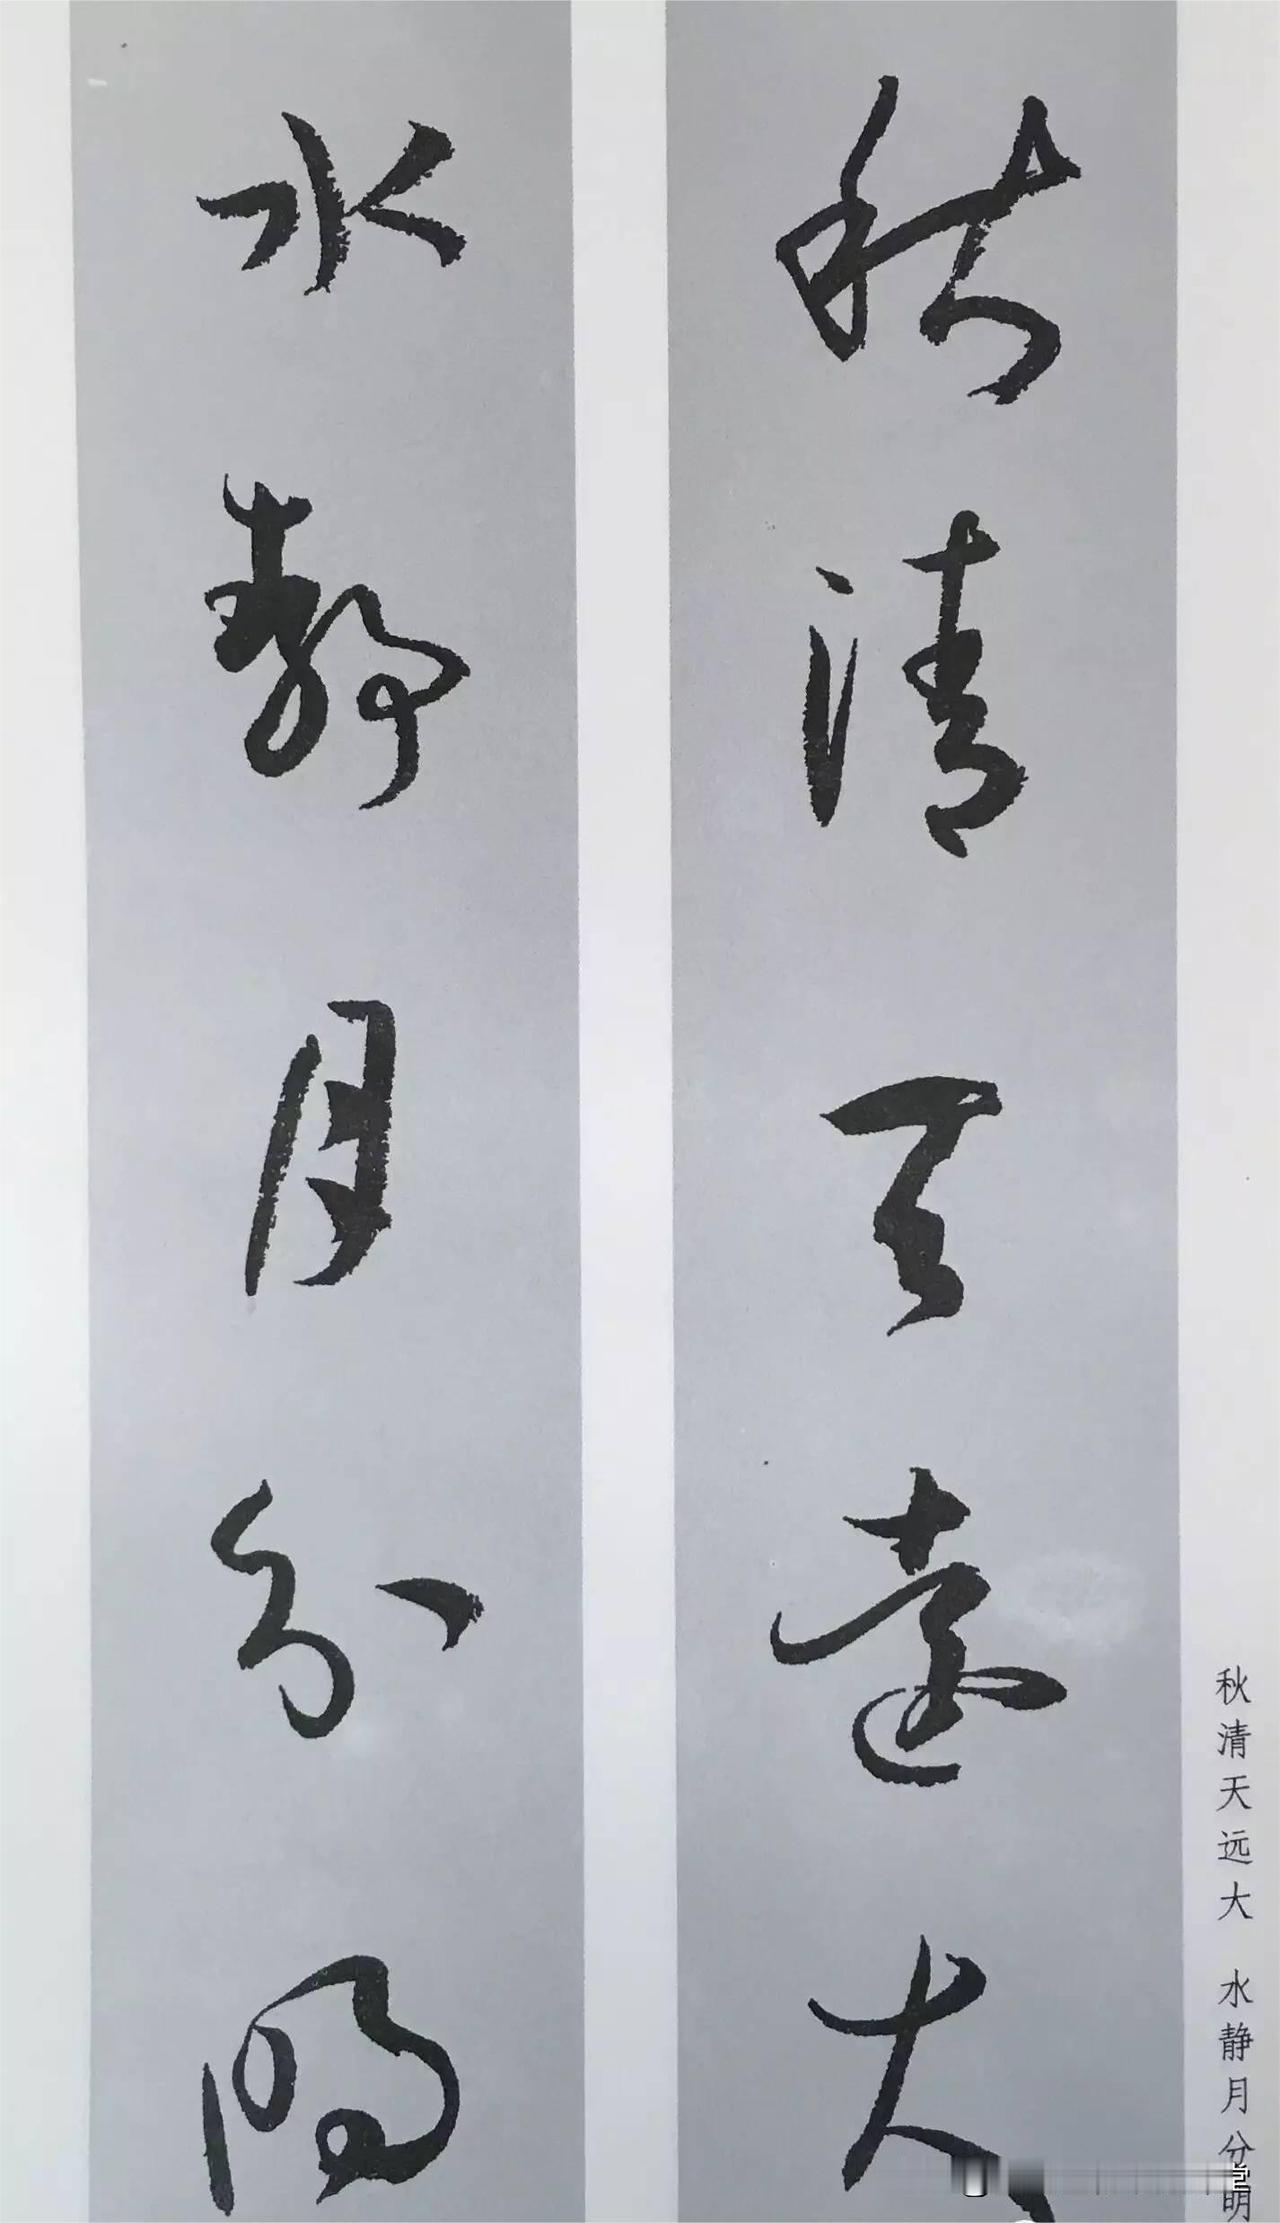 秋清天遠大
水靜月分明
秋清天远大 水静月分明